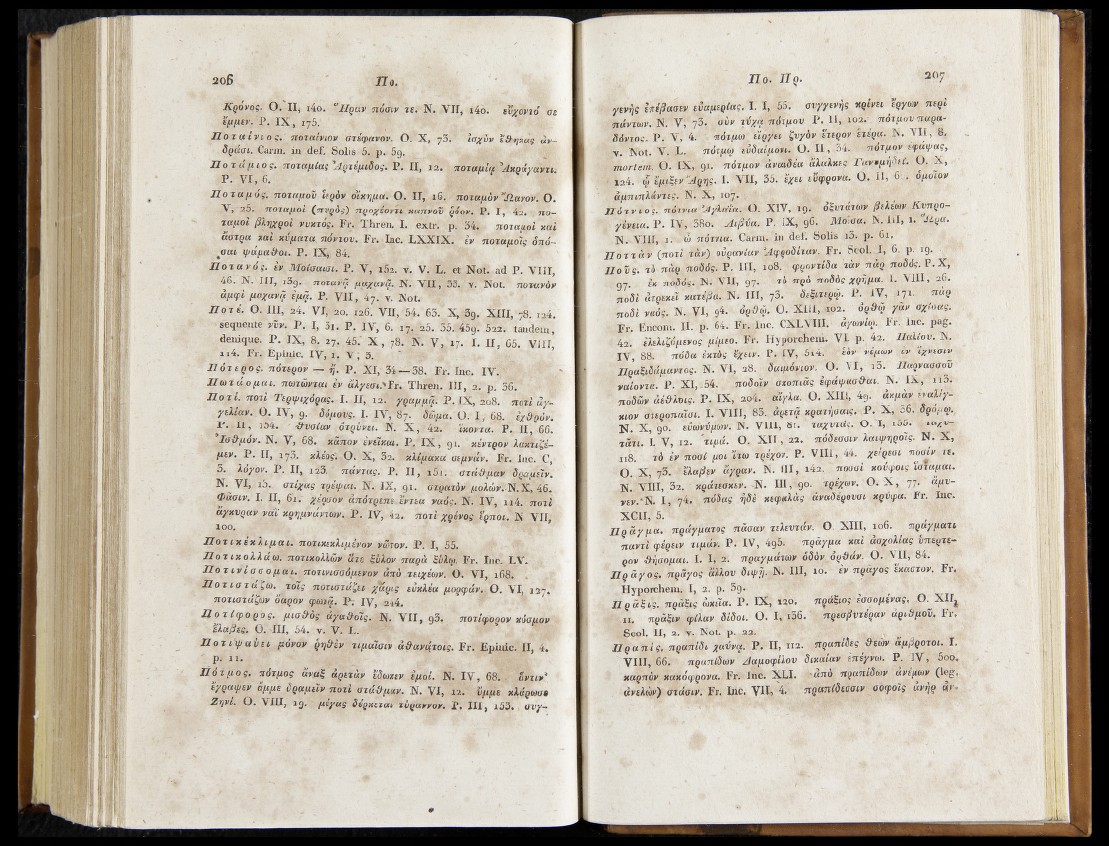 206 Πο.
Κρόνος. O. II, 140. Ἥραν πόσιν τε. N. VII, 140. εὔχοντό σε
ἔμμεν. P. IX, 175.
Ποταίνιος. ποταίνιον στέφανον. O. X, 73. ἰσχὺν ἔθηκας ἀν-
δράσι. Carm. in def. Solis 5. p. 59.
Ποτάμιος. ποταμίας Ἀρτέμιδος. P. II, 12. ποταμίᾳ Ἀκράγαντι.
P. VI, 6.
Ποταμός. ποταμοῦ ἱερὸν οἴκημα. O. II, 16. ποταμὸν Ὤανον. O.
V, 25. ποταμοὶ (πυρὸς) προχέοντι καπνοῦ ῥόον. P. I, 42. πο-
ταμοὶ βληχροὶ νυκτός. Fr. Thren. I. extr. p. 34. ποταμοὶ καὶ
ἄστρα καὶ κύματα πόντου. Fr. Inc. LXXIX. ἐν ποταμοῖς ὁπό-
σαι ψάμαθοι. P. IX, 84.
Ποτανός. ἐν Μοίσαισι. P. V, 152. v. V. L. et Not. ad P. VIII,
46. N. III, 139. ποτανᾷ μαχανᾷ. N. VII, 33. v. Not. ποτανὸν
ἀμφὶ μαχανᾷ ἐμᾷ. P. VII, 47. v. Not.
Ποτέ. O. III, 24. VI, 20. 126. VII, 54. 63. X, 39. XIII, 78. 124.
sequente νῦν. P. I, 31. P. IV, 6. 17. 25. 55. 459. 522. tandem,
denique. P. IX, 8. 27, 45. X, 78. N. V, 17. I. II, 65. VIII,
114. Fr. Epinic. IV, 1. V, 3.
Πότερος. πότερον — ἤ. P. XI, 34—38. Fr. Inc. IV.
Πωτάομαι. πωτῶνται ἐν ἄλγεσι. Fr. Thren. III, 2. p. 36.
Ποτί. ποτὶ Τερψιχόρας. I. II, 12. γραμμᾷ. P. IX, 208. ποτὶ ἀγ-
γελίαν. O. IV, 9. δόμους. I. IV, 87. δῶμα. O. I, 68. ἐχθρόν.
P. II, 154. θυσίαν ὀτρύνει. N. X, 42. ἵκοντα. P. II, 66.
Ἰσθμόν. N. V, 68. κᾶπον ἐνεῖκαι. P. IX, 91. κέντρον λακτιζέ-
μεν. P. II, 173. κλέος. O. X, 32. κλίμακα σεμνάν. Fr. Inc. C,
3. λόγον. P. II, 123. πάντας. P. II, 151. στάθμαν δραμεῖν.
N. VI, 15. στίχας τρέψαι. N. IX, 91. στρατὸν μολών. N. X, 46.
Φᾶσιν. I. II, 61. χέρσον ἀπότρεπε ἔντεα ναός. N. IV, 114. ποτὶ
ἄγκυραν ναῒ κρημνάντων. P. IV, 42. ποτὶ χρόνος ἕρποι. N VII,
100.
Ποτικέκλιμαι. ποτικεκλιμένον νῶτον. P. I, 55.
Ποτικολλάω. ποτικολλῶν ἅτε ξύλον παρὰ ξύλῳ. Fr. Inc. LV.
Ποτινίσσομαι. ποτινισσόμενον ἀπὸ τειχέων. O. VI, 168.
Ποτιστάζω. τοῖς ποτιστάζει χάρις εὐκλέα μορφάν. O. VI, 127.
ποτιστάζων ὄαρον φωνᾷ. P. IV, 244.
Ποτίφορος. μισθὸς ἀγαθοῖς. N. VII, 93. ποτίφορον κόσμον
ἔλαβες. O. III, 54. v. V. L.
Ποτιψαύει μόνον ῥηθὲν τιμαῖσιν ἀθανάτοις. Fr. Epinic. II, 4.
p. 11.
Πότμος. πότμος ἄναξ ἀρετὰν ἔδωκεν ἐμοί. N. IV, 68. ὅντιν'
ἔγραψεν ἄμμε δραμεῖν ποτὶ στάθμαν. N. VI, 12. ὔμμε κλάρωσε
Ζηνί. O. VIII, 19. μέγας δέρκεται τύραννον. P. III, 153. συγ-
Πο. Πρ. 207
γενὴς ἐπέβασεν εὐαμερίας. I. I, 55. συγγενὴς κρίνει ἔργων περὶ
πάντων. N. V, 73. σὺν τύχᾳ πότμου P. II, 102. πότμου παρα-
δόντος. P. V, 4. πότμῳ εἴργει ζυγὸν ἕτερον ἑτέρα. N. VII, 8.
v. Not. V. L. πότμῳ εὐδαίμονι. O. II, 34. πότμον ἐφάψας,
mortem. O. IX, 91. πότμον ἀναιδέα ἄλαλκες Γανυμήδεϊ. O. X,
124. ᾧ ἔμιξεν Ἄρης. I. VII, 35. ἔχει εὔφρονα. O. II, 6 . ὁμοῖον
ἀμπιπλάντες. N. X, 107.
Πότνιος. πότνια Ἀγλαΐα. O. XIV, 19. ὀξυτάτων βελέων Κυπρο-
γένεια. P. IV, 380. Λιβύα. P. IX, 96. Μοῖσα. N. III, 1. Ὥρα.
N. VIII, 1. ὦ πότνια. Carm. in def. Solis 13. p. 61.
Ποττὰν (ποτὶ τὰν) οὐρανίαν Ἀφροδίταν. Fr. Scol. I, 6. p. 19.
Πούς. τὸ πὰρ ποδός. P. III, 108. φροντίδα τὰν πὰρ ποδός. P. X,
97. ἐκ ποδός. N. VII, 97. τὸ πρὸ ποδὸς χρῆμα. I. VIII, 26.
ποδὶ ἀτρεκεῖ κατέβα. N. III, 73. δεξιτερῷ. P. IV, 171. πὰρ
ποδὶ ναός. N. VI, 94. ὀρθῷ. O. XIII, 102. ὀρθῷ γὰν σχίσας.
Fr. Encom. II. p. 64. Fr. Inc. CXLVIII. ἀγωνίῳ. Fr. Inc. pag.
42. ἐλελιζόμενος μίμεο. Fr. Hyporchem. VI. p. 42. Παλίου. N.
IV, 88. πόδα ἐκτὸς ἔχειν. P. IV, 514. ἑὸν νέμων ἐν ἴχνεσιν
Πραξιδάμαντος. N. VI, 28. δαιμόνιον. O. VI, 13. Παρνασσοῦ
ναίοντα. P. XI, 54. ποδοῖν σκοπιᾶς ἐφάψασθαι. N. IX, 113.
ποδῶν ἀέθλοις. P. IX, 204. αἴγλα. O. XIII, 49. ἀκμὰν ἐναλίγ-
κιον στεροπαῖσι. I. VIII, 83. ἀρετᾷ κρατήσαις. P. X, 36. δρόμῳ.
N. X, 90. εὐωνύμων. N. VIII, 81. ταχυτάς. O. I, 155.
τᾶτι. I. V, 12. τιμά. O. XII, 22. πόδεσσιν λαιψηροῖς. N. X,
118. τὸ ἐν ποσί μοι ἴτω τρέχον. P. VIII, 44. χείρεσι ποσίν τε.
O. X, 73. ἔλαβεν ἄγραν. N. III, 142. ποσσὶ κούφοις ἵσταμαι.
N. VIII, 32. κράτεσκεν. N. III, 90. τρέχων. O. X, 77. ἀμυ-
νεν. N. I, 74. πόδας ἠδὲ κεφαλὰς ἀναδέρουσι κρύφα. Fr. Inc.
XCII, 5.
Πρᾶγμα. πράγματος πᾶσαν τελευτάν. O XIII, 106. πράγματι
παντὶ φέρειν τιμάν. P. IV, 495. πρᾶγμα καὶ ἀσχολίας ὑπερτε-
ρον θήσομαι. I. I, 2. πραγμάτων ὁδὸν ὀρθάν. O. VII, 84.
Πρᾶγος. πρᾶγος ἄλλου διψῇ. N. III, 10. ἐν πρᾶγος ἕκαστον. Fr.
Hyporchem. I, 2. p. 39.
Πρᾶξις. πρᾶξις ὠκεῖα. P. IX, 120. πράξιος ἐσσομένας. O. XII,
11. πρᾶξιν φίλαν δίδοι. O. I, 136. πρεσβυτέραν ἀριθμοῦ. Fr.
Scol. II, 2. v. Not. p. 22.
Πραπίς. πραπίδι χαύνᾳ. P. II, 112. πραπίδες θεῶν ἄμβροτοι. I.
VIII, 66. πραπίδων Δαμοφίλου δικαίαν ἐπέγνω. P. IV, 500.
καρπὸν κακόφρονα. Fr. Inc. XLI. ἀπὸ πραπίδων ἀνέμων (leg.
ἀνελὼν) στάσιν. Fr. Inc. VII, 4. πραπίδεσσιν σοφοῖς ἀνὴρ ἀν-